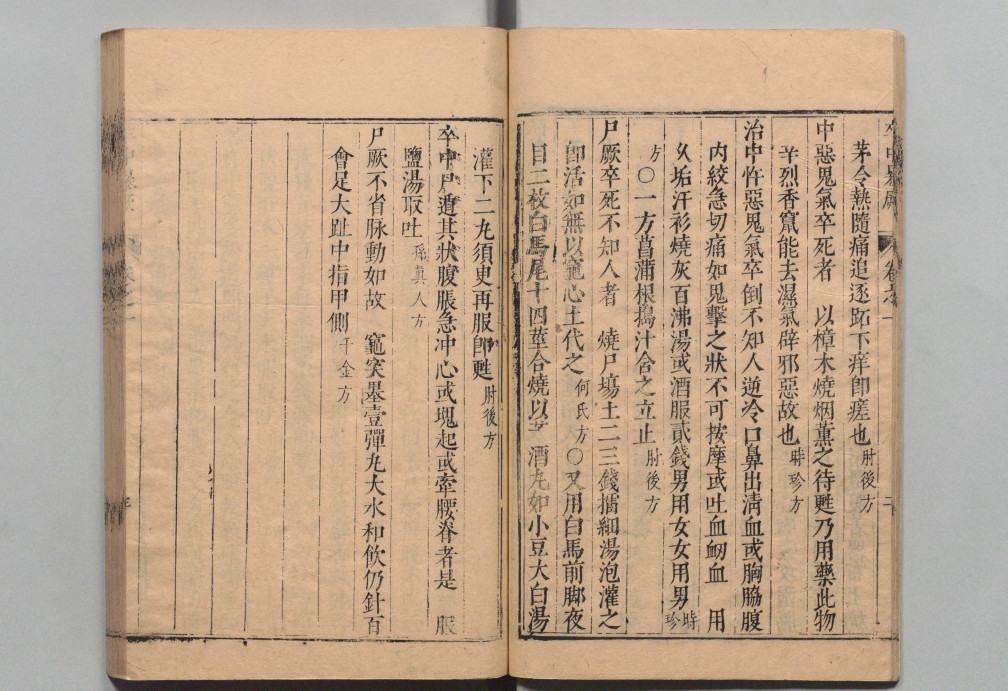 茅令熱隨痛追逐跖下痒卽瘥也肘後方
中惡鬼氣卒死者 以樟木燒烟薰之待甦乃用藥此物
辛烈香竄能去濕氣辟邪惡故也時珍方
治中忤惡鬼氣卒倒不知人逆冷口鼻出淸血或胸脇腹
內絞急切痛如鬼擊之狀不可按摩或吐血衂血 用
久垢汗衫燒灰百沸湯或酒服貳錢男用女女用男時珍
方〇一方菖蒲根搗汁含之立止肘後方
尸厥卒死不知人者 燒尸塲土二三錢擂細湯泡灌之
卽活如無以竈心土代之何氏方〇又用白馬前脚夜
目二枚白馬尾十四莖合燒以 酒丸如小豆大白湯
灌下二丸須臾再服卽甦肘後方
卒中尸遁其狀腹脹急冲心或塊起或牽腰脊者是 服
鹽湯取吐孫真人方
尸厥不省脉動如故 竈突墨壹彈丸大水和飮仍針百
會足大趾中指甲側千金方